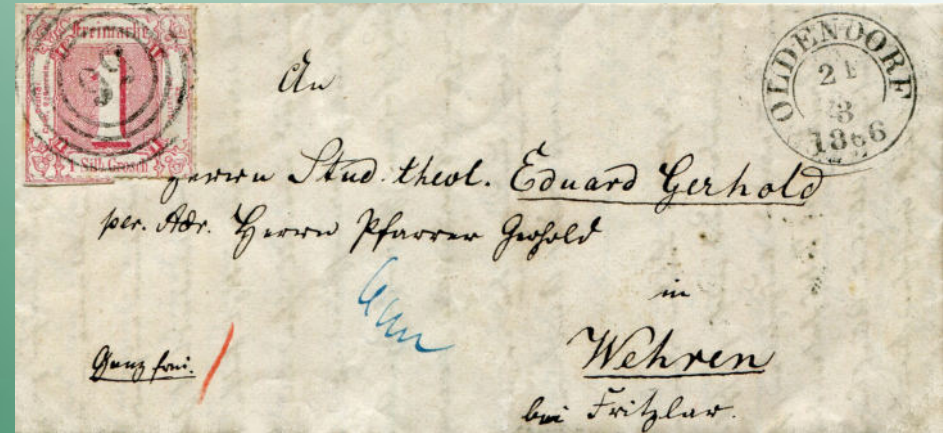 Freimarke
1
1 Silb. Grosch
OLDENDORF
21
8
1866
An
Herrn Stud. theol. Eduard Gerhold
per. Adr. Herrn Pfarrer Gerhold
in
Wehren
bei Fritzlar.
Ganz frei.